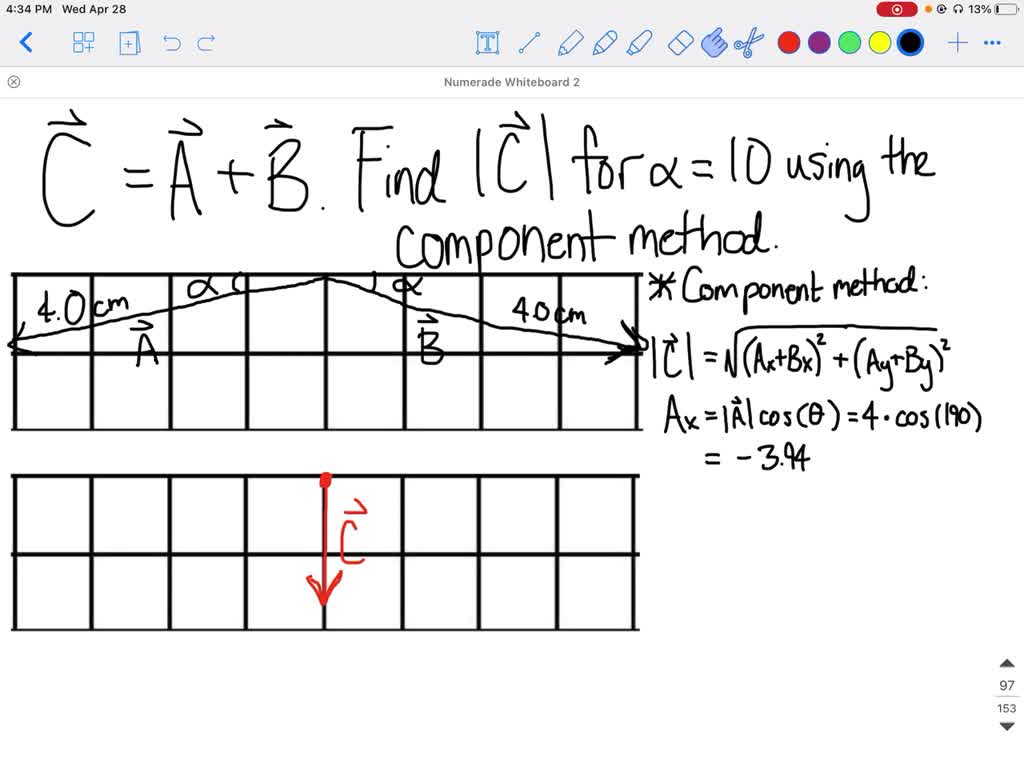 4:34 PM Wed Apr 28 13%
Numerade Whiteboard 2
C⃗ = A⃗ + B⃗. Find |C⃗| for α = 10 using the
component method.
4.0 cm α α 4.0 cm
A⃗ B⃗
* Component method:
|C⃗| = √(Ax+Bx)² + (Ay+By)²
Ax = |A⃗| cos(θ) = 4 · cos(190)
= -3.94
C⃗
97
153